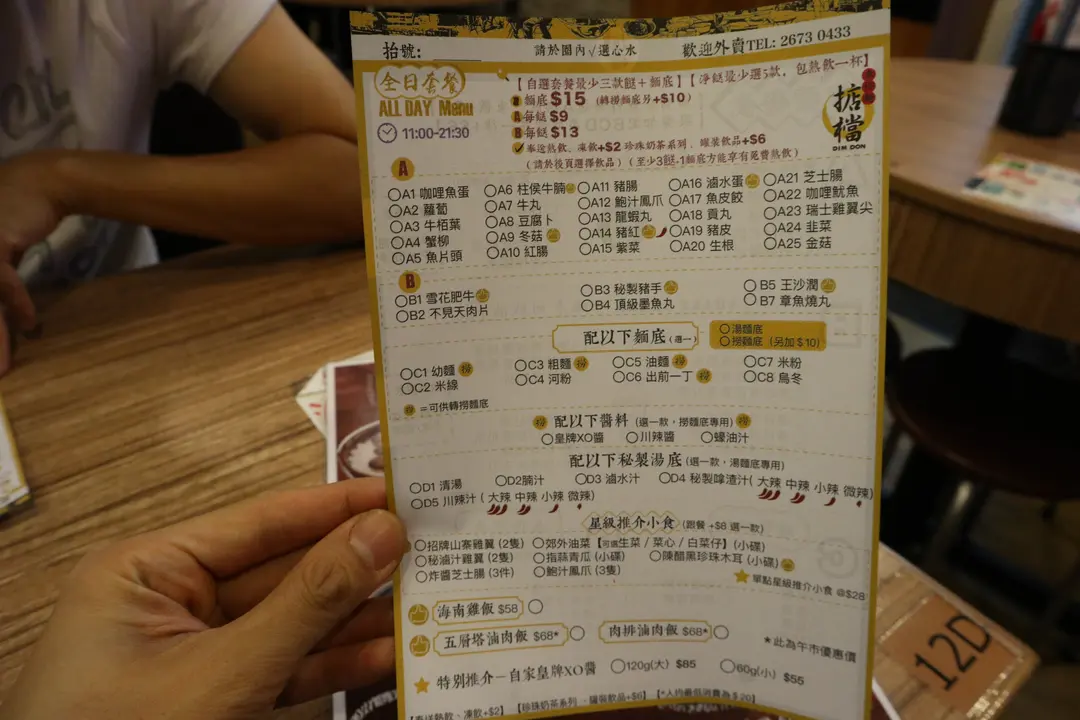 枱號:
請於圈內√選心水
歡迎外賣TEL: 2673 0433
全日套餐
ALL DAY Menu
11:00-21:30
【自選套餐最少三款餸+麵底】【淨餸最少選5款,包熱飲一杯】
麵底$15 (轉撈麵底另+$10)
A 每餸 $9
B 每餸 $13
奉送熱飲、凍飲+$2 珍珠奶茶系列、罐裝飲品+$6
(請於後頁選擇飲品) (至少3餸1麵底方能享有免費熱飲)
掂檔
DIM DON
A
A1 咖哩魚蛋
A2 蘿蔔
A3 牛栢葉
A4 蟹柳
A5 魚片頭
A6 柱侯牛腩
A7 牛丸
A8 豆腐卜
A9 冬菇
A10 紅腸
A11 豬腸
A12 鮑汁鳳爪
A13 龍蝦丸
A14 豬紅
A15 紫菜
A16 滷水蛋
A17 魚皮餃
A18 貢丸
A19 豬皮
A20 生根
A21 芝士腸
A22 咖哩魷魚
A23 瑞士雞翼尖
A24 韭菜
A25 金菇
B
B1 雪花肥牛
B2 不見天肉片
B3 秘製豬手
B4 頂級墨魚丸
B5 王沙潤
B7 章魚燒丸
配以下麵底 (選一)
湯麵底
撈麵底 (另加$10)
C1 幼麵 撈
C2 米線
C3 粗麵 撈
C4 河粉
C5 油麵 撈
C6 出前一丁 撈
C7 米粉
C8 烏冬
撈 =可供轉撈麵底
撈 配以下醬料 (選一款,撈麵底專用) 撈
皇牌XO醬 川辣醬 蠔油汁
配以下秘製湯底 (選一款,湯麵底專用)
D1 清湯 D2腩汁 D3 滷水汁 D4 秘製嗱渣汁( 大辣 中辣 小辣 微辣)
D5 川辣汁 ( 大辣 中辣 小辣 微辣)
星級推介小食 (跟餐 +$8 選一款)
招牌山寨雞翼 (2隻)
秘滷汁雞翼 (2隻)
炸醬芝士腸 (3件)
郊外油菜【可選生菜 / 菜心 / 白菜仔】(小碟)
指蒜青瓜 (小碟)
鮑汁鳳爪 (3隻)
陳醋黑珍珠木耳 (小碟)
單點星級推介小食 @$28
海南雞飯 $58
五層塔滷肉飯 $68*
肉排滷肉飯 $68*
*此為午市優惠價
特別推介 – 自家皇牌XO醬
120g(大) $85
60g(小) $55
【奉送熱飲、凍飲+$2】【珍珠奶茶系列、罐裝飲品+$6】【*人均最低消費為$20】
12D